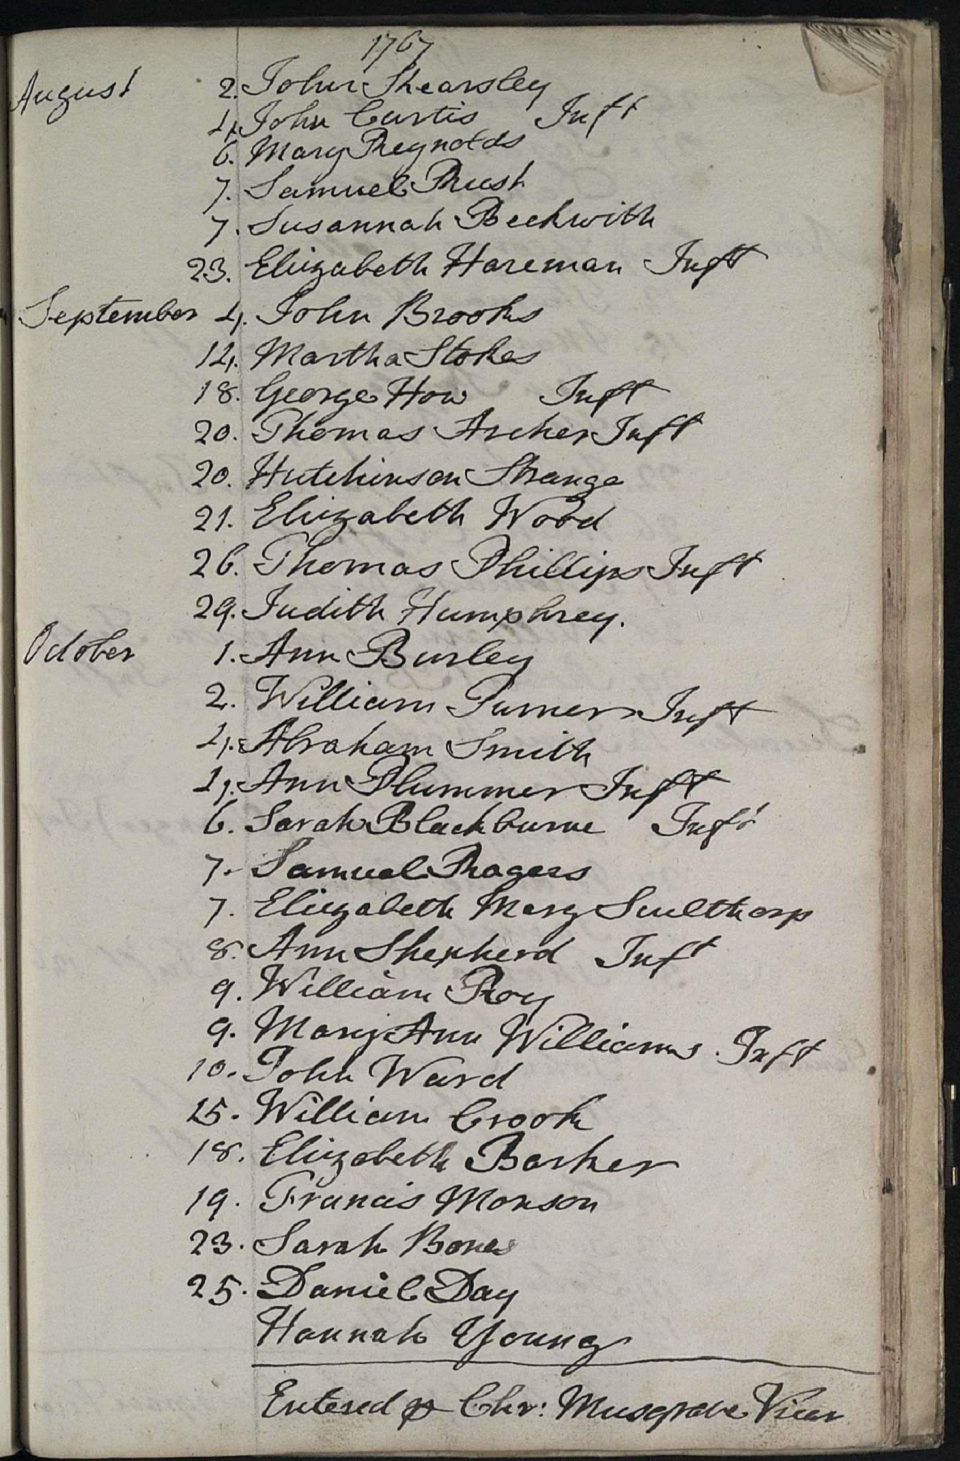 1767
August 2. John Shearsley
4. John Curtis Inft
6. Mary Reynolds
7. Samuel Rush
7. Susannah Beckwith
23. Elizabeth Hareman Inft
September 4. John Brooks
14. Martha Stokes
18. George How Inft
20. Thomas Archer Inft
20. Hutchinson Strange
21. Elizabeth Wood
26. Thomas Phillips Inft
29. Judith Humphrey.
October 1. Ann Burley
2. William Turner Inft
4. Abraham Smith
4. Ann Plummer Inft
6. Sarah Blackburne Inft
7. Samuel Rogers
7. Elizabeth Mary Sculthorp
8. Ann Shepherd Inft
9. William Roy
9. Mary Ann Williams. Inft
10. John Ward
15. William Crook
18. Elizabeth Barker
19. Francis Monson
23. Sarah Bones
25. Daniel Day
Hannah Young
Entered p Chr: Musgrave Vicar